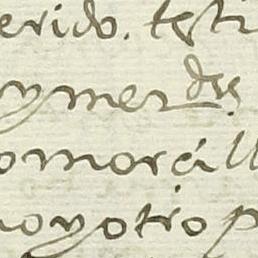 erido. testi
ymer dos.
omorcill
noyotrop